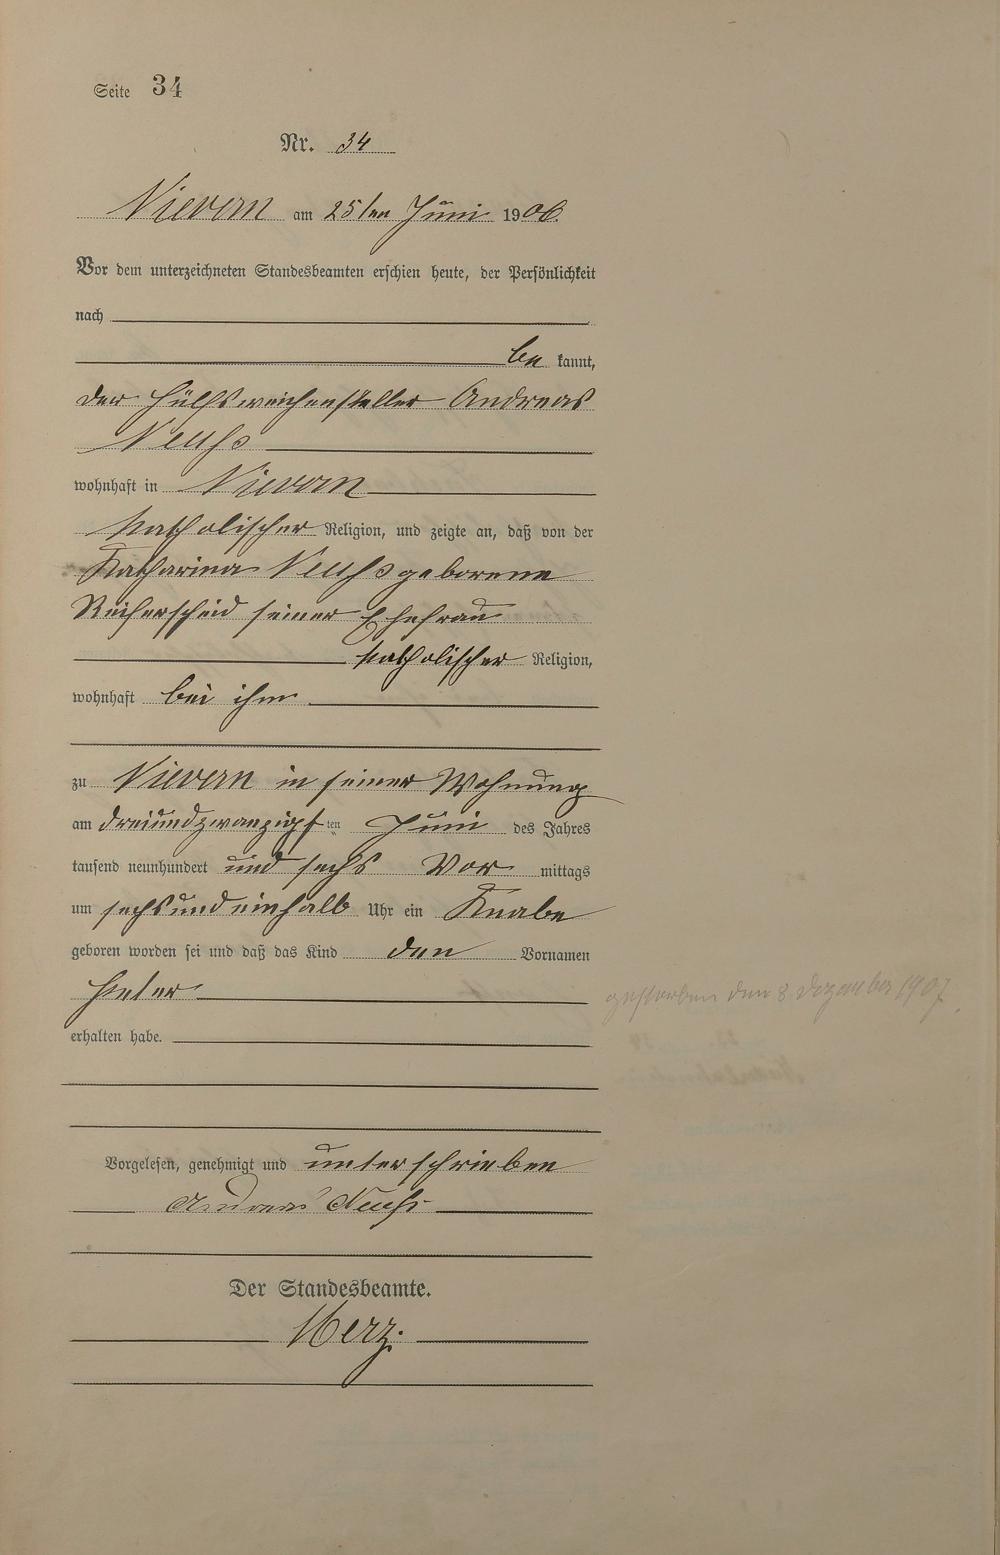 Seite 34
Nr. 34
Nievern am 25ten Juni 1906
Vor dem unterzeichneten Standesbeamten erschien heute, der Persönlichkeit
nach
be kannt,
der Hülfsweichensteller Andreas
Neuß
wohnhaft in Nievern
katholischer Religion, und zeigte an, daß von der
Katharina Neuß geborene
Reiferscheid seiner Ehefrau
katholischer Religion,
wohnhaft bei ihm
zu Nievern in seiner Wohnung
am dreiundzwanzigsten Juni des Jahres
tausend neunhundert und sechs Vor mittags
um sechsundeinhalb Uhr ein Knabe
geboren worden sei und daß das Kind den Vornamen
Peter
gestorben den 8 Dezember 1907.
erhalten habe.
Vorgelesen, genehmigt und unterschrieben
Andreas Neuß
Der Standesbeamte.
Merz.